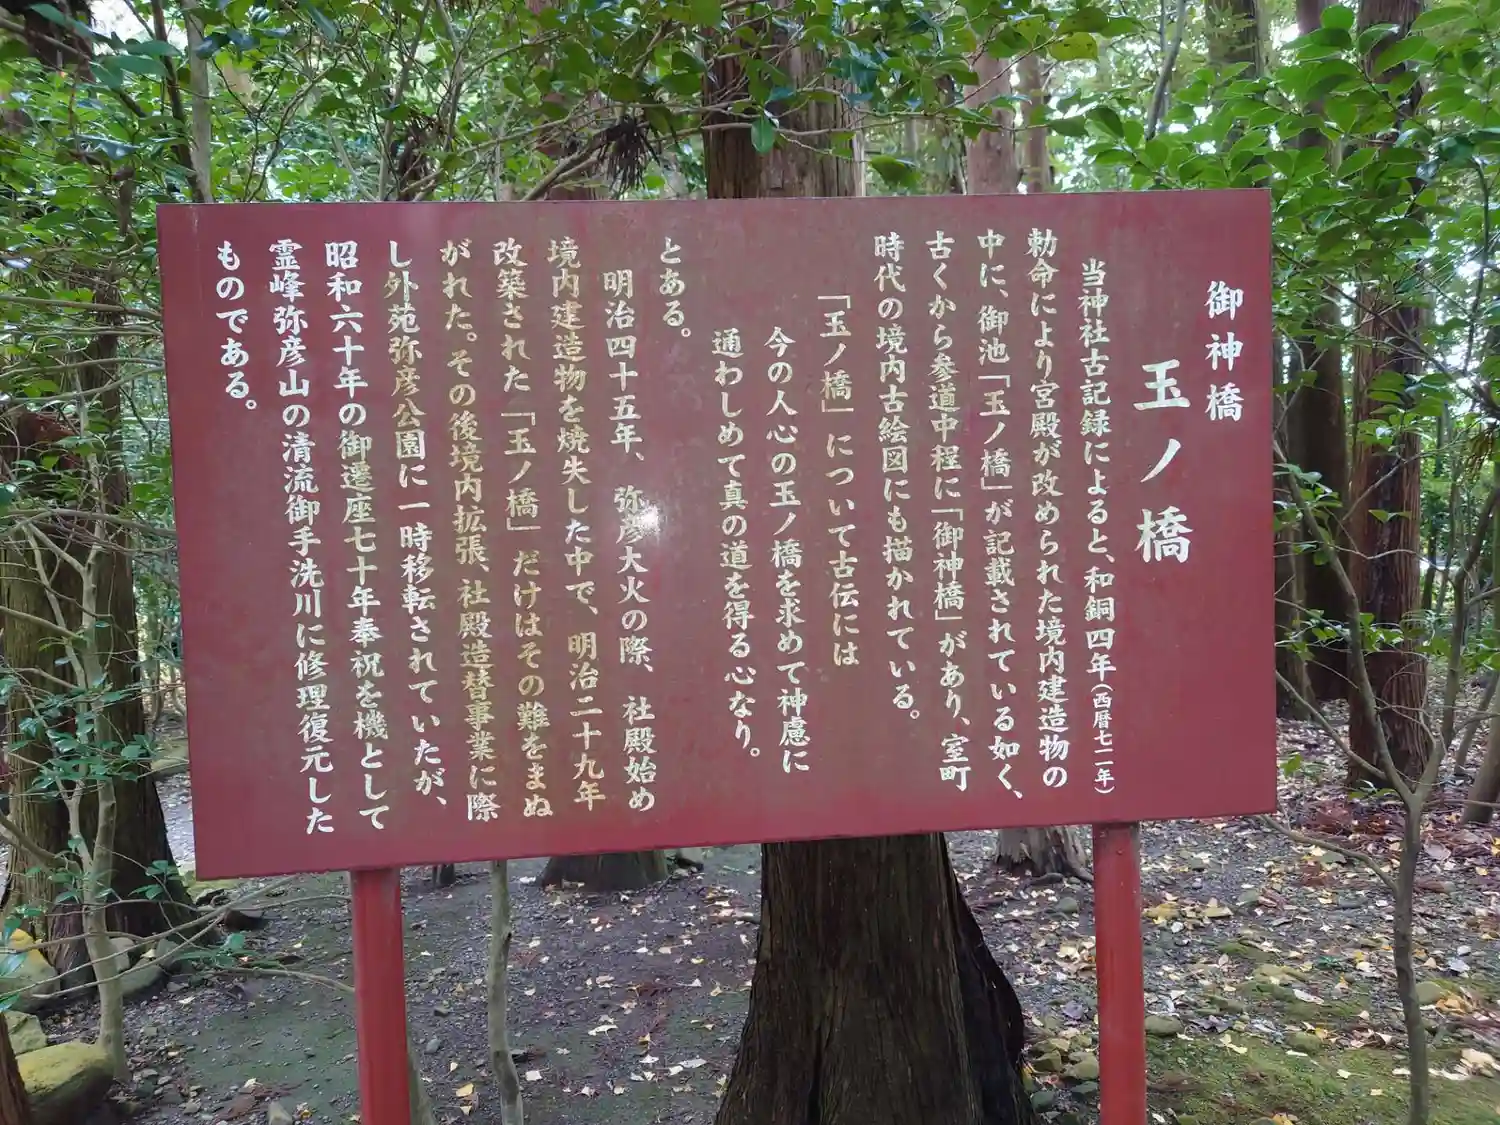 御神橋
玉ノ橋
当神社古記録によると、和銅四年（西暦七一一年）
勅命により宮殿が改められた境内建造物の
中に、御池「玉ノ橋」が記載されている如く、
古くから参道中程に「御神橋」があり、室町
時代の境内古絵図にも描かれている。
「玉ノ橋」について古伝には
今の人心の玉ノ橋を求めて神慮に
通わしめて真の道を得る心なり。
とある。
明治四十五年、弥彦大火の際、社殿始め
境内建造物を焼失した中で、明治二十九年
改築された「玉ノ橋」だけはその難をまぬ
がれた。その後境内拡張、社殿造替事業に際
し外苑弥彦公園に一時移転されていたが、
昭和六十年の御遷座七十年奉祝を機として
霊峰弥彦山の清流御手洗川に修理復元した
ものである。